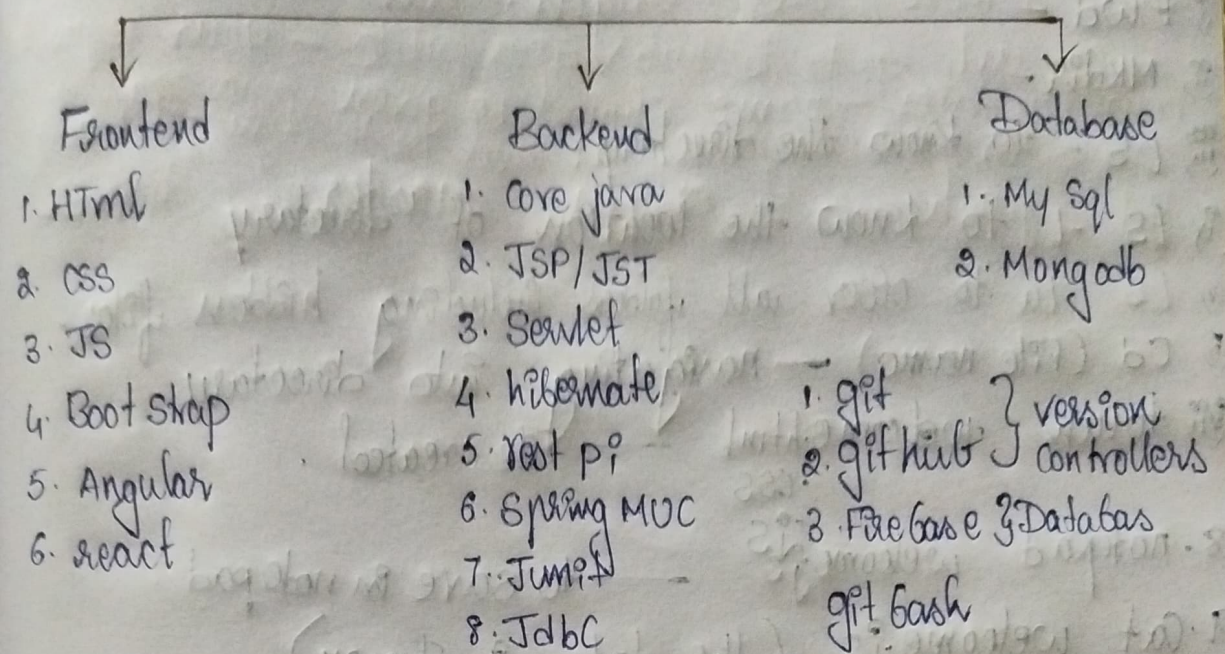 Frontend
1. HTml
2. CSS
3. JS
4. Boot Strap
5. Angular
6. react
Backend
1. Core java
2. JSP/JST
3. Servlet
4. hibernate
5. rest pi
6. Spring MVC
7. Junit
8. JdbC
Database
1. My Sql
2. Mongodb
1. git
2. github } version controllers
3. Firebase } Databas
git bash